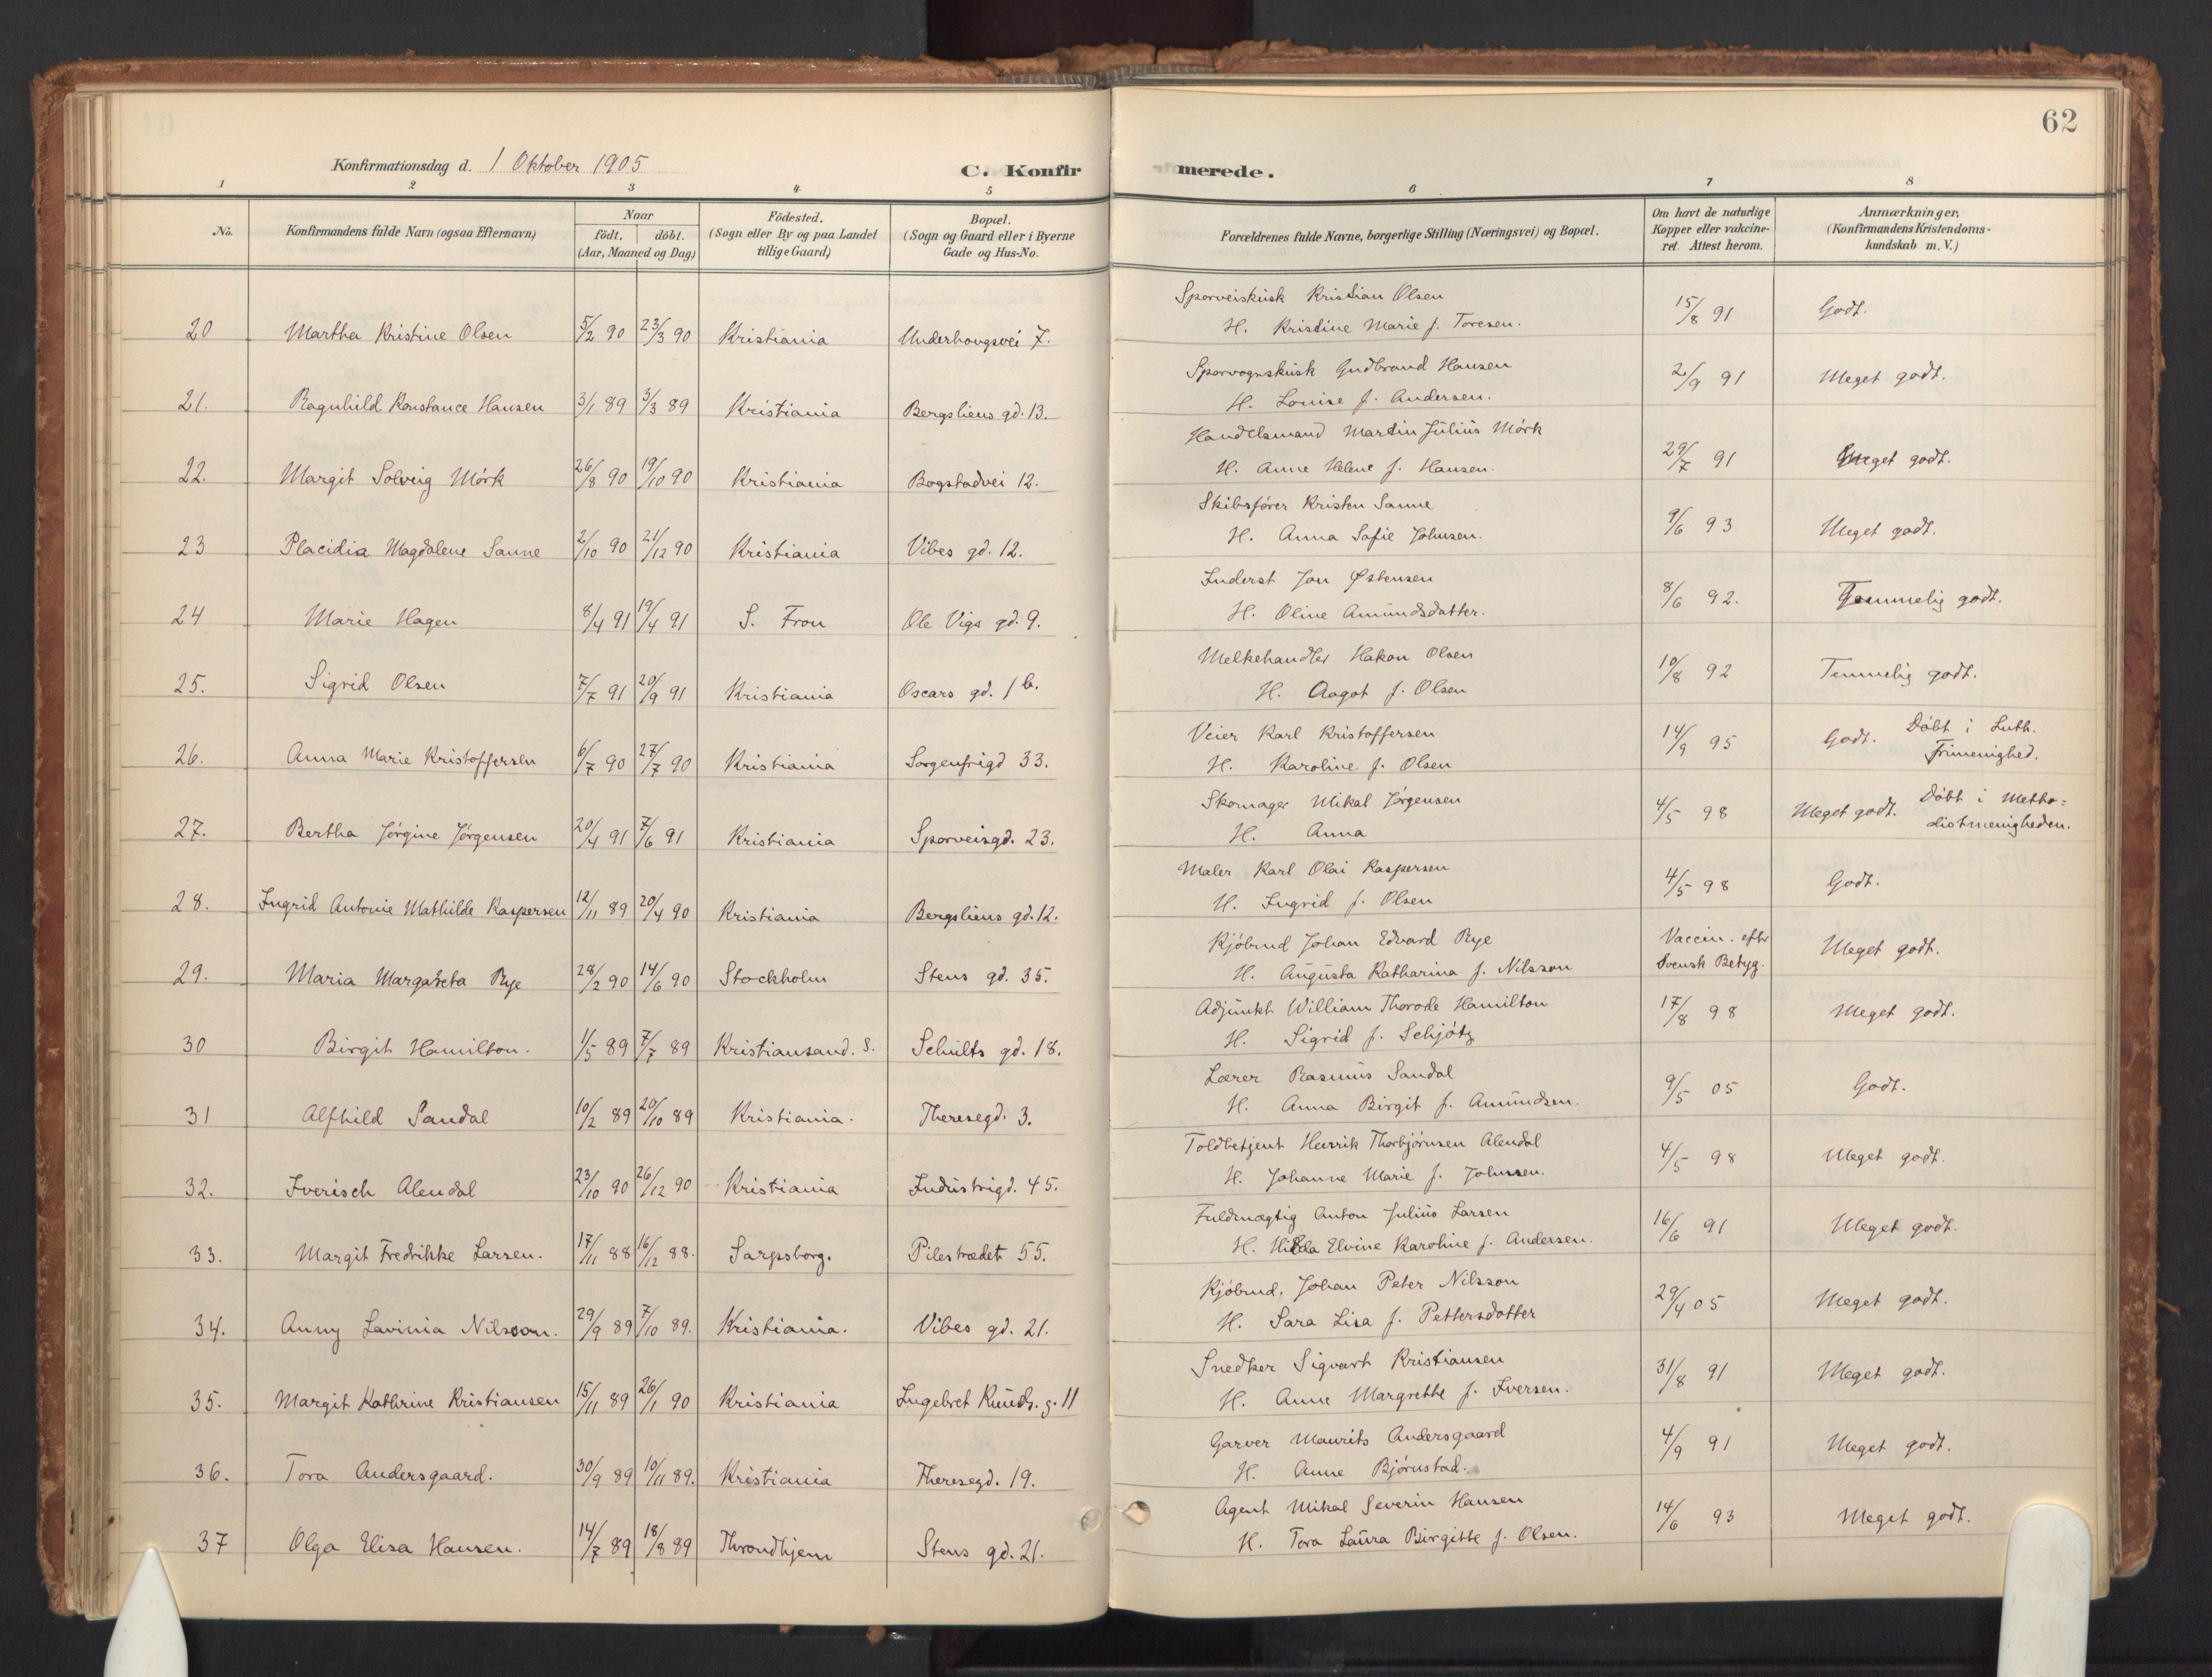 62
Konfirmationsdag d. 1 Oktober 1905
C. Konfirmerede.
1 2 3 4 5 6 7 8
No.
Konfirmandens fulde Navn (ogsaa Efternavn)
Naar
født. døbt.
(Aar, Maaned og Dag)
Fødested.
(Sogn eller By og paa Landet
tillige Gaard)
Bopæl.
(Sogn og Gaard eller i Byerne
Gade og Hus-No.
Forældrenes fulde Navne, borgerlige Stilling (Næringsvei) og Bopæl.
Om havt de naturlige
Kopper eller vakcine-
ret. Attest herom.
Anmærkninger.
(Konfirmandens Kristendoms-
kundskab m. V.)
20 Martha Kristine Olsen 5/2 90 23/3 90 Kristiania Underhaugsvei 7.
Sporveiskusk Kristian Olsen
H. Kristine Marie f. Toresen. 15/8 91 Godt.
21. Ragnhild Konstance Hansen 3/1 89 3/3 89 Kristiania Bergsliens gd. 13.
Sporvognskusk Gudbrand Hansen
H. Louise f. Andersen. 2/9 91 Meget godt.
22. Margit Solveig Mörk 26/8 90 19/10 90 Kristiania Bogstadvei 12.
Handelsmand Martin Julius Mörk
H. Anne Helene f. Hansen. 29/7 91 Meget godt.
23 Placidia Magdalene Sanne 2/10 90 21/12 90 Kristiania Vibes gd. 12.
Skibsfører Kristen Sanne
H. Anna Sofie Johnsen. 9/6 93 Meget godt.
24 Marie Hagen 8/4 91 19/4 91 S. Fron Ole Vigs gd. 9.
Inderst Jon Østensen
H. Oline Amundsdatter. 8/6 92. Temmelig godt.
25. Sigrid Olsen 7/7 91 20/9 91 Kristiania Oscars gd. 1 b.
Melkehandler Hakon Olsen
H. Aagot f. Olsen 10/8 92 Temmelig godt.
26. Anna Marie Kristoffersen 6/7 90 27/7 90 Kristiania Sorgenfrigd 33.
Veier Karl Kristoffersen
H. Karoline f. Olsen 14/9 95 Godt. Döbt i Luth.
Frimenighed.
27. Bertha Jörgine Jörgensen 20/4 91 7/6 91 Kristiania Sporveisgd. 23.
Skomager Mikal Jörgensen
H. Anna 4/5 98 Meget godt. Döbt i Metho=
distmenigheden.
28. Ingrid Antonie Mathilde Kaspersen 12/11 89 20/4 90 Kristiania Bergsliens gd. 12.
Maler Karl Olai Kaspersen
H. Ingrid f. Olsen 4/5 98 Godt.
29. Maria Margareta Rye 28/2 90 14/6 90 Stockholm Stens gd. 35.
Kjöbmd Johan Edvard Rye
H. Augusta Katharina f. Nilsson Vaccin. efter
Svensk Betyg. Meget godt.
30 Birgit Hamilton. 1/5 89 7/7 89 Kristiansand. S. Schults gd. 18.
Adjunkt William Thorode Hamilton
H. Sigrid f. Schjötz 17/8 98 Meget godt.
31 Alfhild Sandal 10/2 89 20/10 89 Kristiania. Theresegd. 3.
Lærer Rasmus Sandal
H. Anna Birgit f. Amundsen. 9/5 05 Godt.
32. Iverisch Alendal 23/10 90 26/12 90 Kristiania Industrigd. 45.
Toldbetjent Henrik Thorbjörnsen Alendal
H. Johanne Marie f. Johnsen. 4/5 98 Meget godt.
33. Margit Fredrikke Larsen. 17/11 88 16/12 88. Sarpsborg. Pilestrædet 55.
Fuldmægtig Anton Julius Larsen
H. Hilda Elvine Karoline f. Andersen. 16/6 91 Meget godt.
34. Anny Lavinia Nilsson. 29/9 89 7/10 89. Kristiania. Vibes gd. 21.
Kjöbmd. Johan Peter Nilsson
H. Sara Lisa f. Pettersdotter 29/4 05 Meget godt.
35. Margit Kathrine Kristiansen 15/11 89 26/1 90 Kristiania Ingebret Knuds. g. 11
Snedker Sigvart Kristiansen
H. Anne Margrethe f. Iversen. 31/8 91 Meget godt.
36. Tora Andersgaard. 30/9 89 10/11 89. Kristiania Theresegd. 19.
Garver Maurits Andersgaard
H. Anne Björnstad. 4/9 91 Meget godt.
37 Olga Elisa Hansen. 14/7 89 18/8 89 Throndhjem Stens gd. 21.
Agent Mikal Severin Hansen
H. Tora Laura Birgitte f. Olsen. 14/6 93 Meget godt.